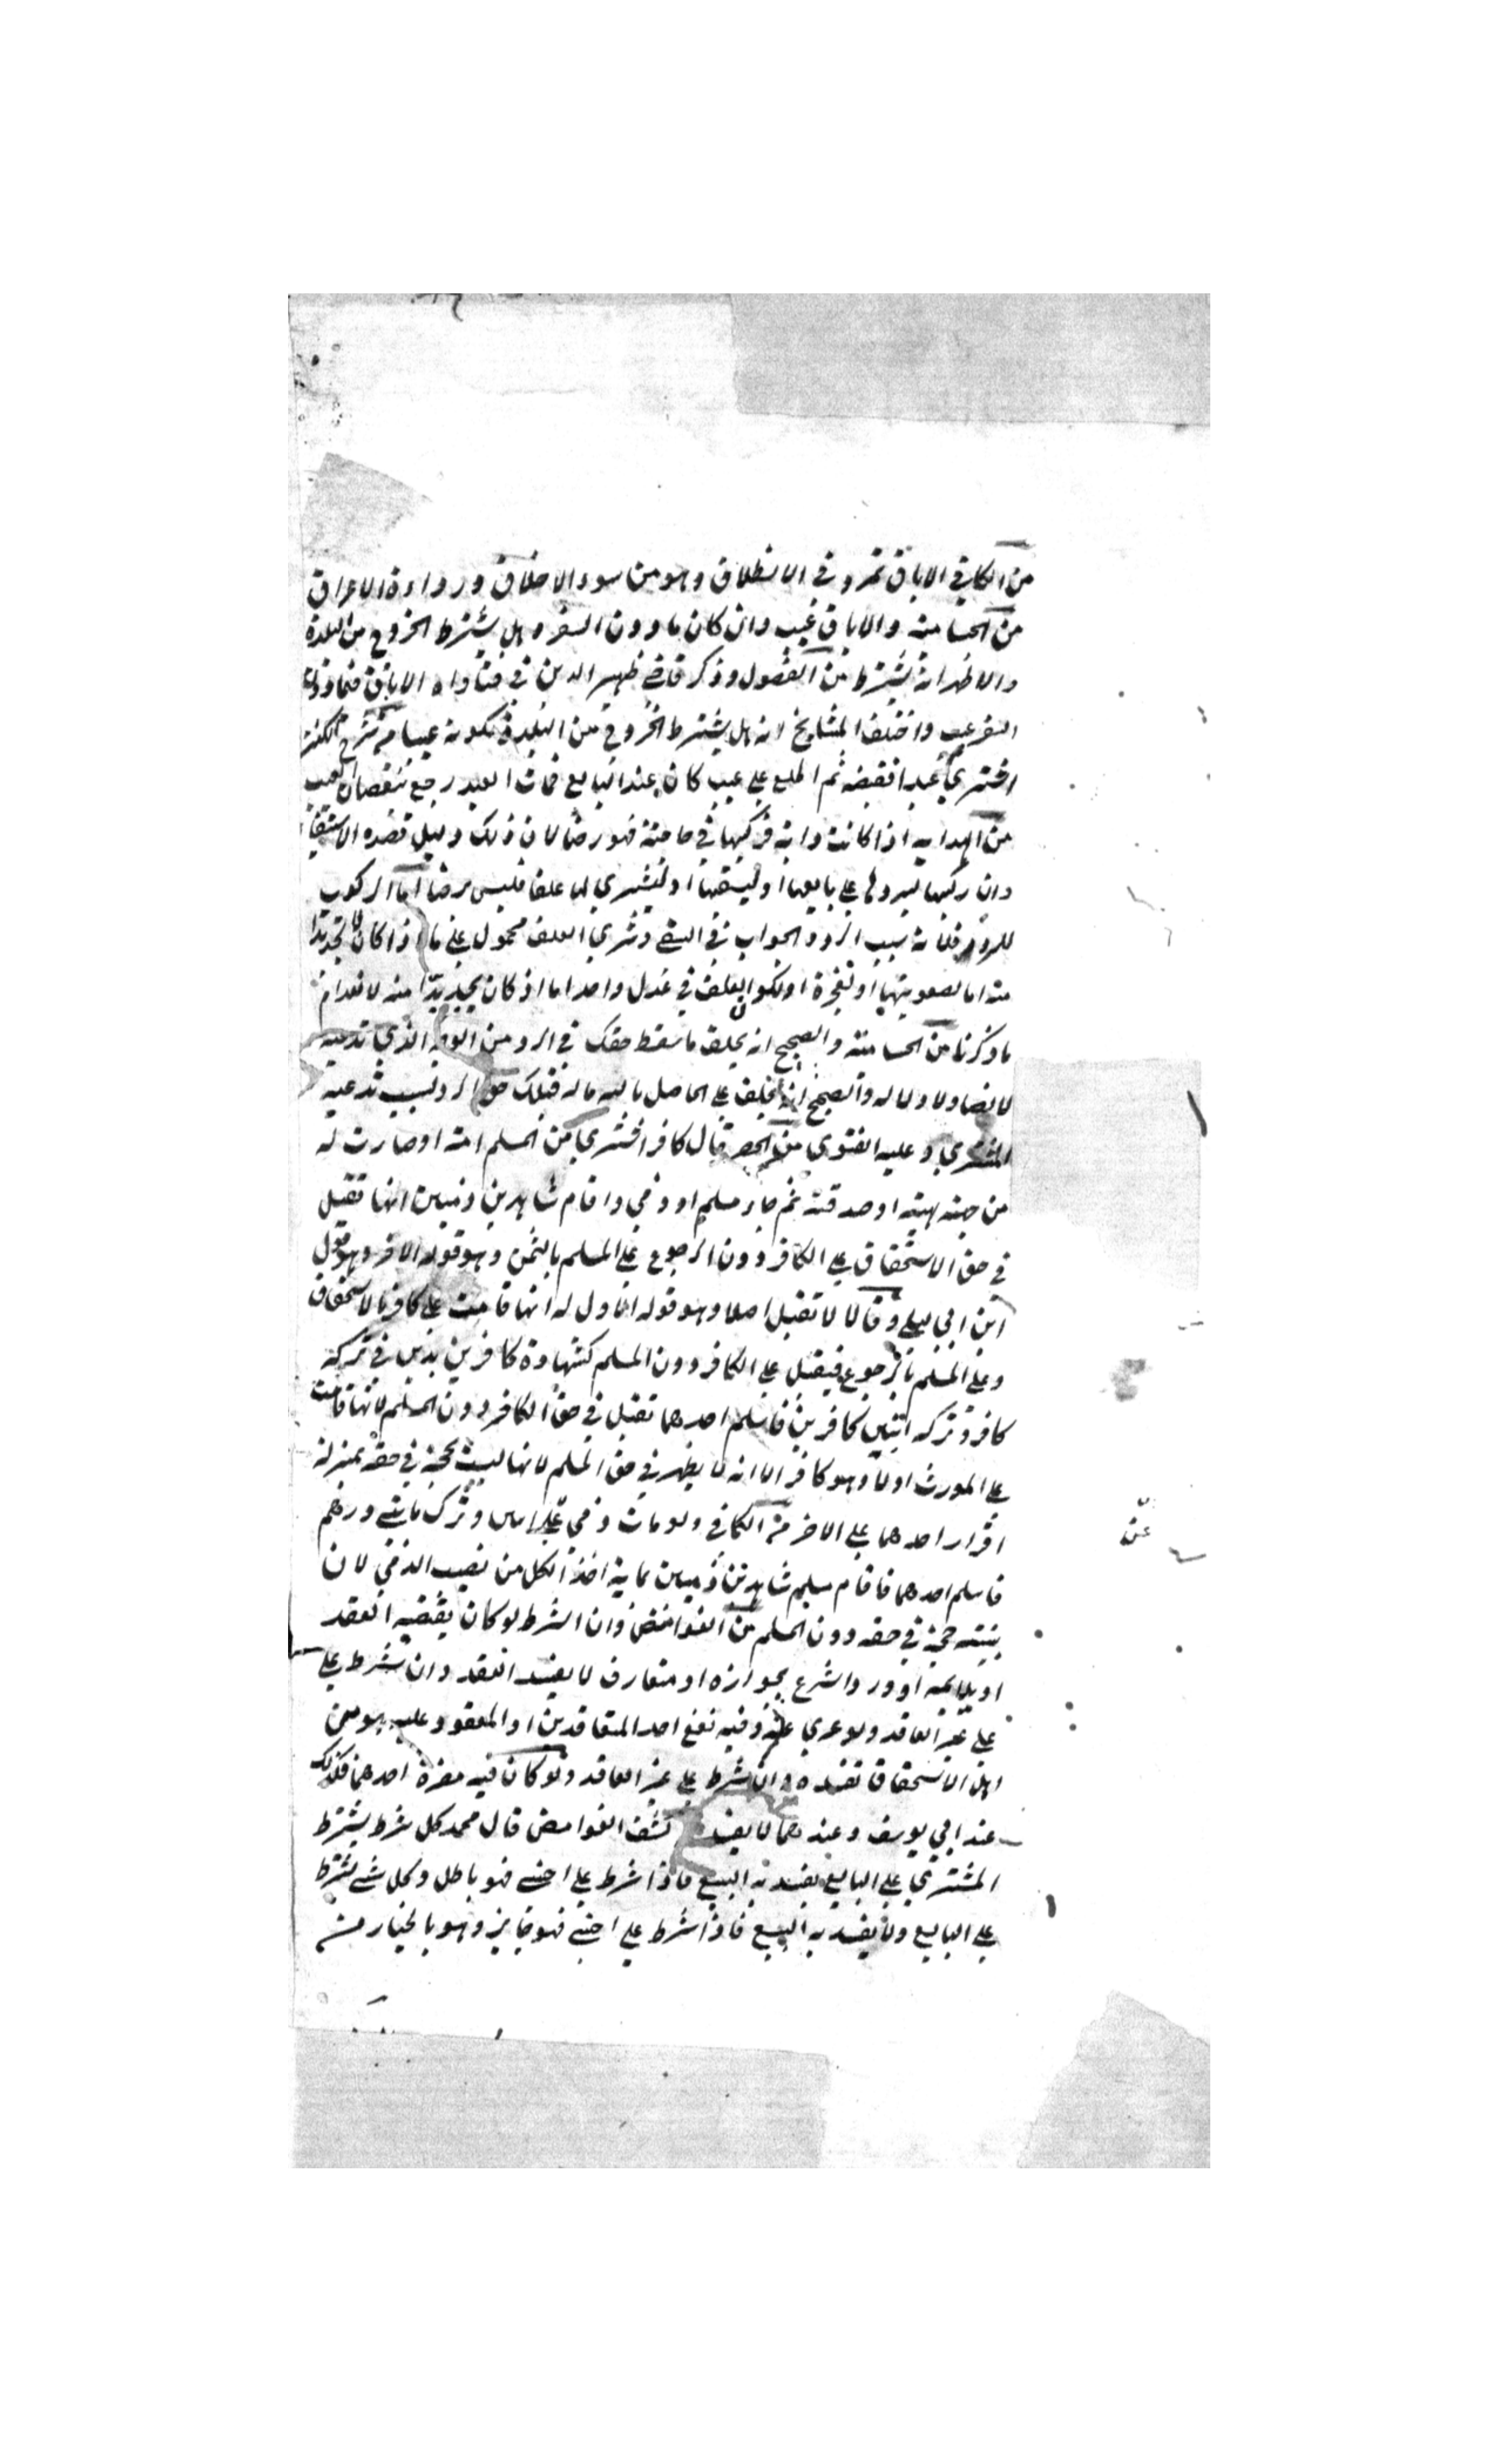 من الكافي الاباق تمرد في الانطلاق وهو من سوء الاخلاق ورداءة الاعراق
من الحسامية والاباق عيب وان كان ما دون السفر وهل يشترط الخروج من البلدة
والاظهر انه يشترط من الفصول وذكر قاضي ظهير الدين في فتاواه الاباق فيما دون
السفر عيب واختلف المشايخ لانه هل يشترط الخروج من البلدة لكونه عيبا من شرح الكنز
اشتري عبدا فقبضه ثم اطلع على عيب كان عند البايع فمات العبد رجع بنقصان العيب
من الهداية اذا كانت دابة فركبها في حاجته فهو رضا لان ذلك دليل قصده الاستبقا
وان ركبها ليردها على بايعها او ليسقيها او ليشتري لها علفا فليس برضا اما الركوب
للرد فلانه سبب الرد والجواب في السقي وشري العلف محمول على ما اذا كان لا يجد بدا
منه اما لصعوبتها او لعجزه او لكون العلف في عدل واحد اما اذ كان يجد بدا منه لانعدام
ما ذكرنا من الحسامية والصحيح انه يحلف ما سقط حقك في الرد من الوجه الذي تدعيه
لا نصا ولا دلالة والصحيح انه يحلف على الحاصل بالله ما له قبلك حق الرد بسبب تدعيه
المشتري وعليه الفتوى من قال كافر اشتري من المسلم امة او صارت له
من جهته هبة او صدقة ثم جاء مسلم او ذمي واقام شاهدين ذميين انها تقبل
في حق الاستحقاق على الكافر دون الرجوع على المسلم بالثمن وهو قوله الاخر وهو قول
ابن ابي ليلى وقالا لا تقبل اصلا وهو قوله الاول له انها قامت على كافر بالاستحقاق
وعلى المسلم بالرجوع فيقبل على الكافر دون المسلم كشهادة كافرين بدين في تركة
كافر وتركه ابنين كافرين فاسلم احدهما تقبل في حق الكافر دون المسلم لانها قامت
على المورث اولا وهو كافر الا انه لا يظهر في حق المسلم لانها ليست بحجة في حقه بمنزلة
اقرار احدهما على الاخر من الكافي ولو مات ذمي وترك مائتي درهم
فاسلم احدهما فاقام مسلم شاهدين ذميين بماية اخذ الكل من نصيب الذمي لان
بينته حجة في حقه دون المسلم من الغوامض وان الشرط لو كان يقتضيه العقد
او يلايمه او ورد الشرع بجوازه او متعارف لا يفسد العقد وان شرط على
على غير العاقد ولو عري عنه وفيه نفع احد المتعاقدين او المعقود عليه هو من
اهل الاستحقاق تفسده وان شرط على غير العاقد ولو كان فيه مضرة احدهما فكذلك
عند ابي يوسف وعندهما لا يفسد كشف الغوامض قال محمد كل شرط يشترط
المشتري على البايع يفسد به البيع فاذا شرط على اجنبي فهو باطل وكل شي يشترط
على البايع ولا يفسد به البيع فاذا شرط على اجنبي فهو جايز وهو بالخيار من